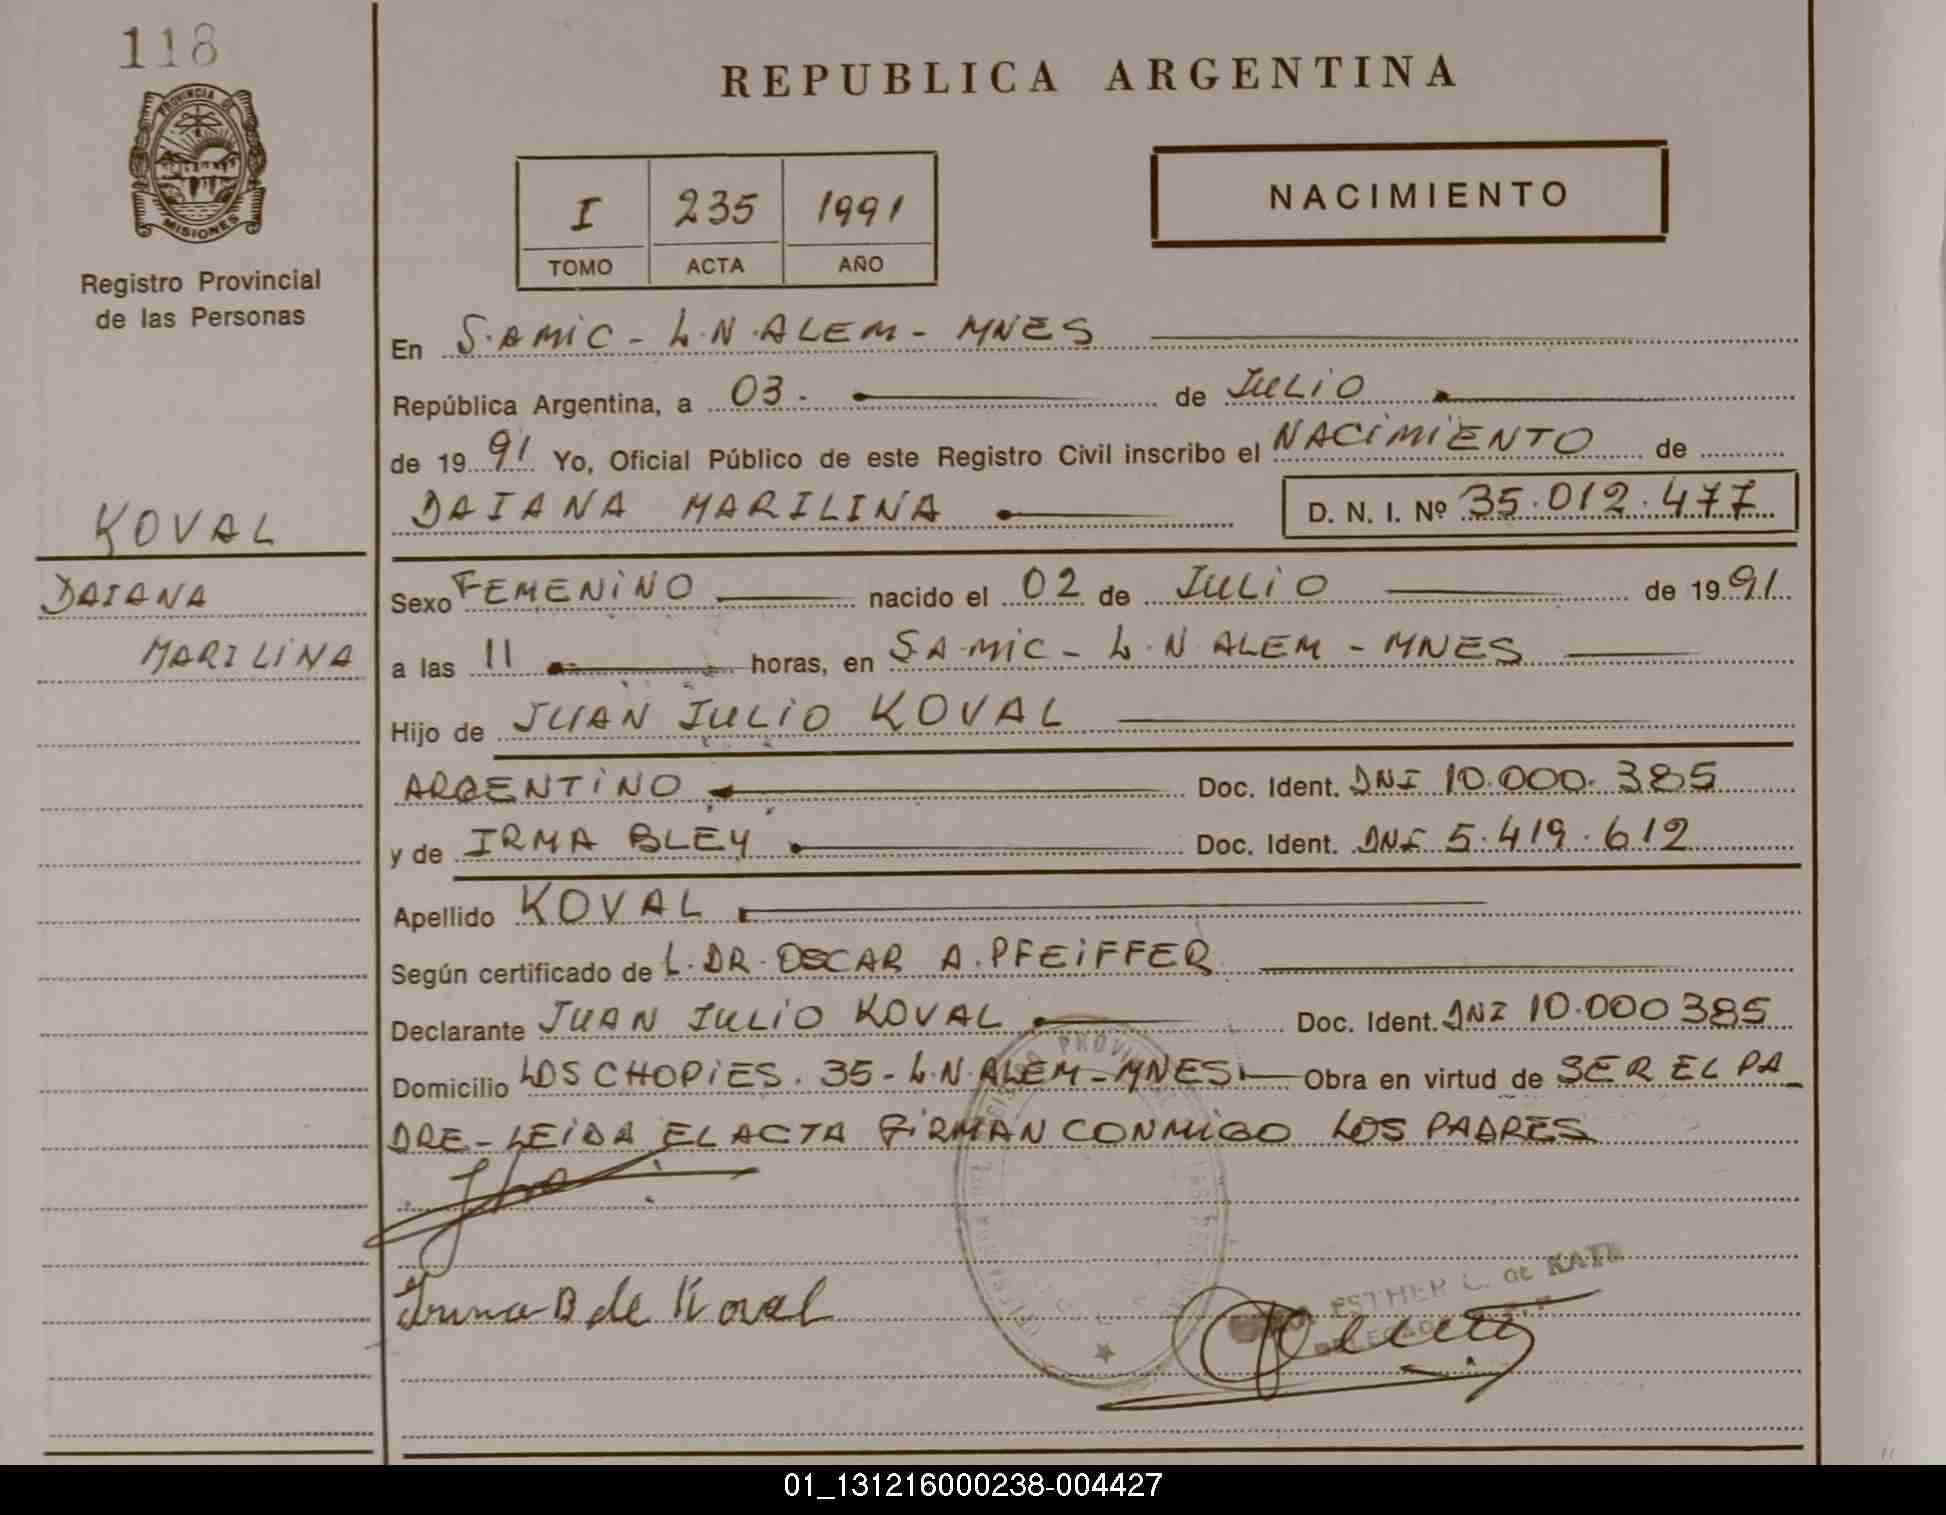 118
PROVINCIA DE
MISIONES
Registro Provincial
de las Personas
KOVAL
DAIANA
MARILINA
REPUBLICA ARGENTINA
I 235 1991
TOMO ACTA AÑO
NACIMIENTO
En S.AMIC - L.N.ALEM - MNES
República Argentina, a 03. de JULIO
de 1991 Yo, Oficial Público de este Registro Civil inscribo el NACIMIENTO de
DAIANA MARILINA D. N. I. Nº 35.012.477
Sexo FEMENINO nacido el 02 de JULIO de 1991
a las 11 horas, en S.A.MIC - L.N.ALEM - MNES
Hijo de JUAN JULIO KOVAL
ARGENTINO Doc. Ident. DNI 10.000.385
y de IRMA BLEY Doc. Ident. DNI 5.419.612
Apellido KOVAL
Según certificado de L.DR.OSCAR A.PFEIFFER
Declarante JUAN JULIO KOVAL Doc. Ident. DNI 10.000385
Domicilio LOS CHOPIES. 35 - L.N.ALEM - MNES Obra en virtud de SER EL PA_
DRE - LEIDA EL ACTA FIRMAN CONMIGO LOS PADRES
Irma B de Koval
ESTHER L. de
01_131216000238-004427